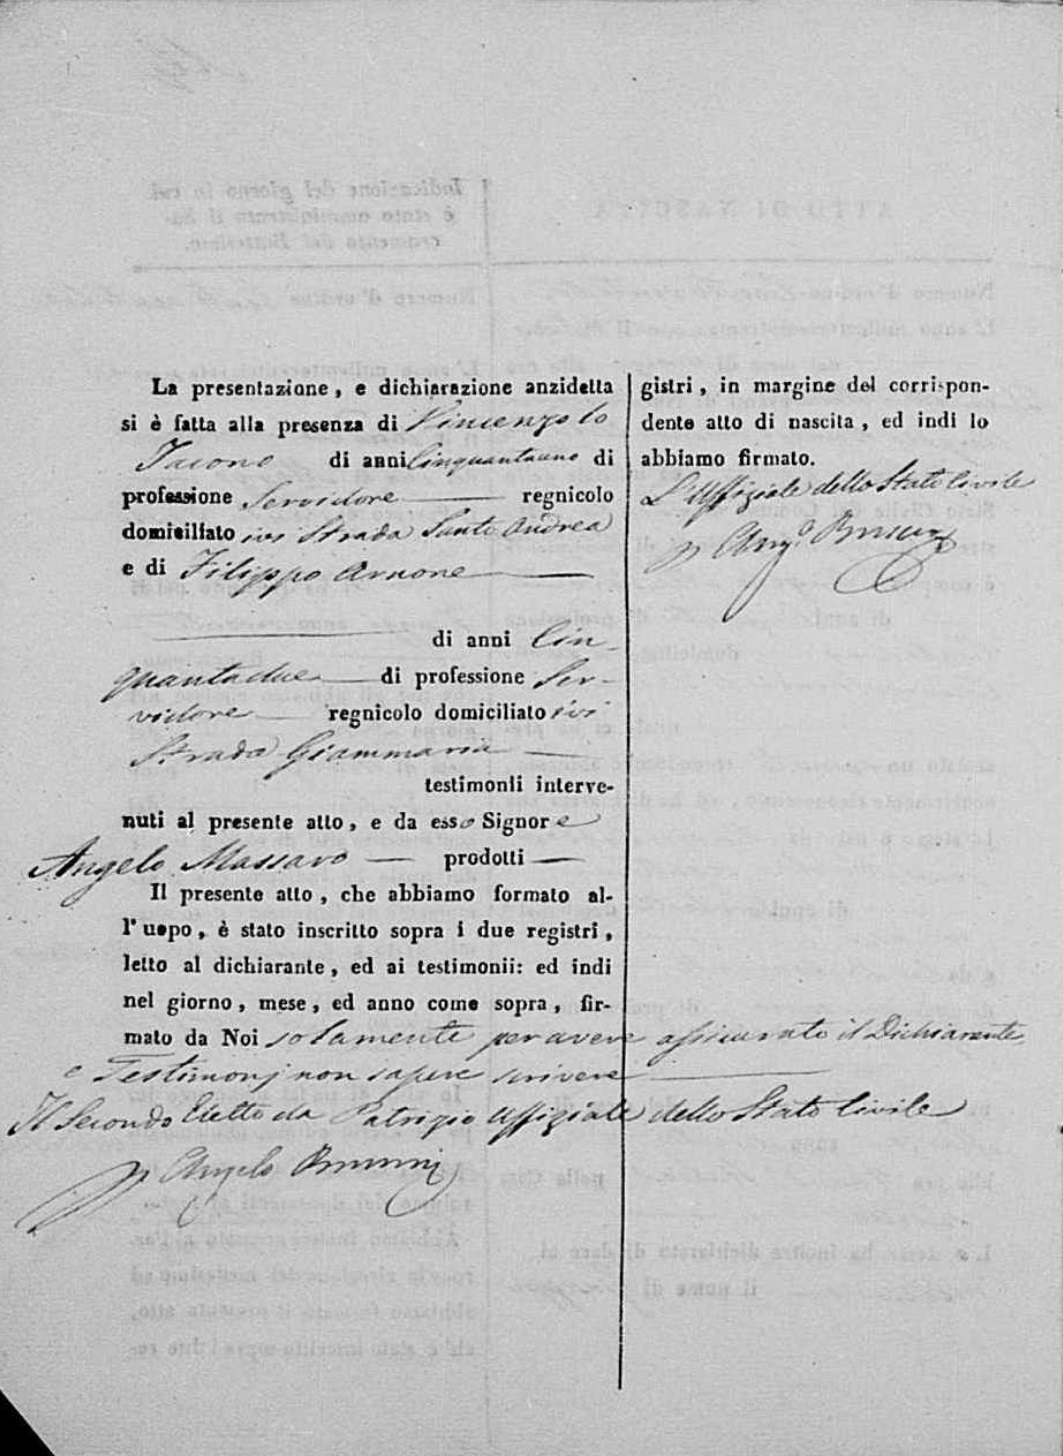 La presentazione, e dichiarazione anzidetta
si è fatta alla presenza di Vincenzo lo
Iacono di anni Cinquantauno di
professione Servidore regnicolo
domiciliato ivi Strada Santo Andrea
e di Filippo Arnone
di anni Cin-
quantadue di professione Ser-
vidore regnicolo domiciliato ivi
Strada Giammaria
testimonii interve-
nuti al presente atto, e da esso Signore
Angelo Massaro prodotti
Il presente atto, che abbiamo formato al-
l'uopo, è stato inscritto sopra i due registri,
letto al dichiarante, ed ai testimonii: ed indi
nel giorno, mese, ed anno come sopra, fir-
mato da Noi solamente per avere assicurato il Dichiarante
e Testimonj non sapere scrivere
Il Secondo Eletto da Patrizio Uffiziale dello Stato Civile
Angelo
gistri, in margine del corrispon-
dente atto di nascita, ed indi lo
abbiamo firmato.
L'Uffiziale dello Stato Civile
Ang.o